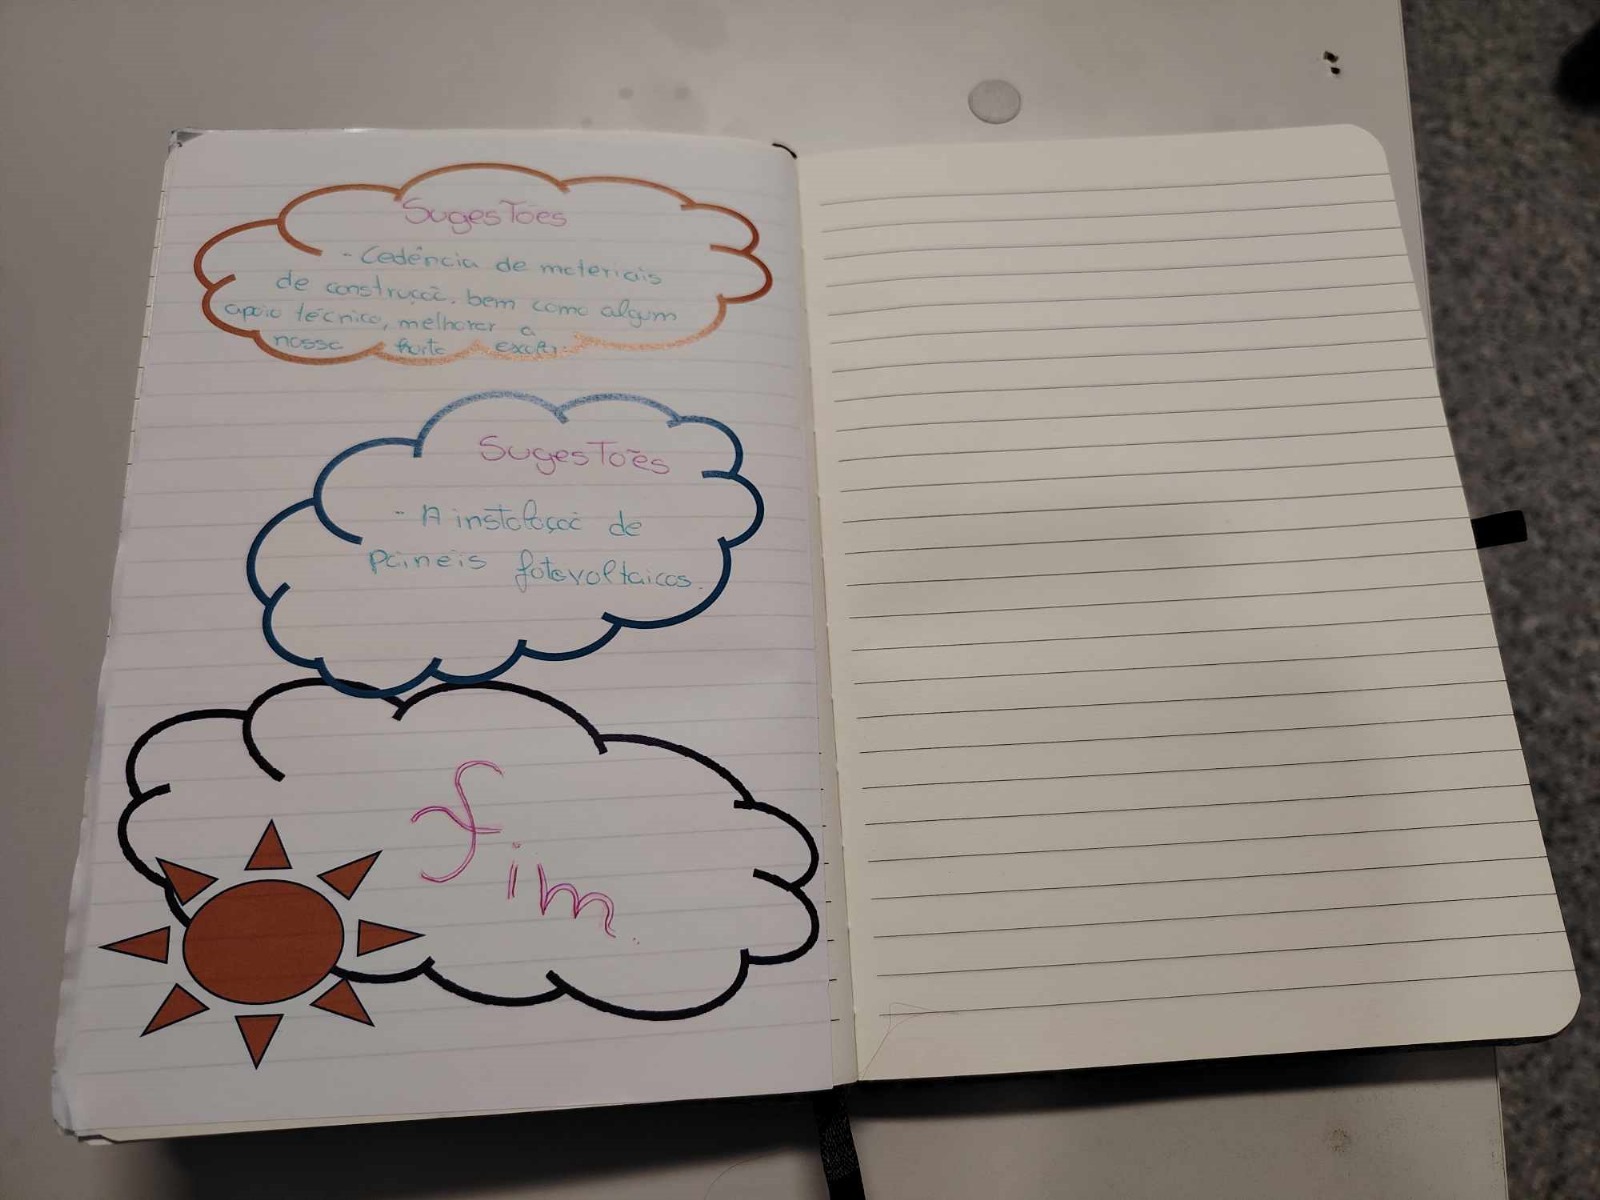 Sugestões
- Cedência de materiais
de construção, bem como algum
apoio técnico, melhorar a
nossa horta
Sugestões
- A instalação de
painéis fotovoltaicos.
Fim.